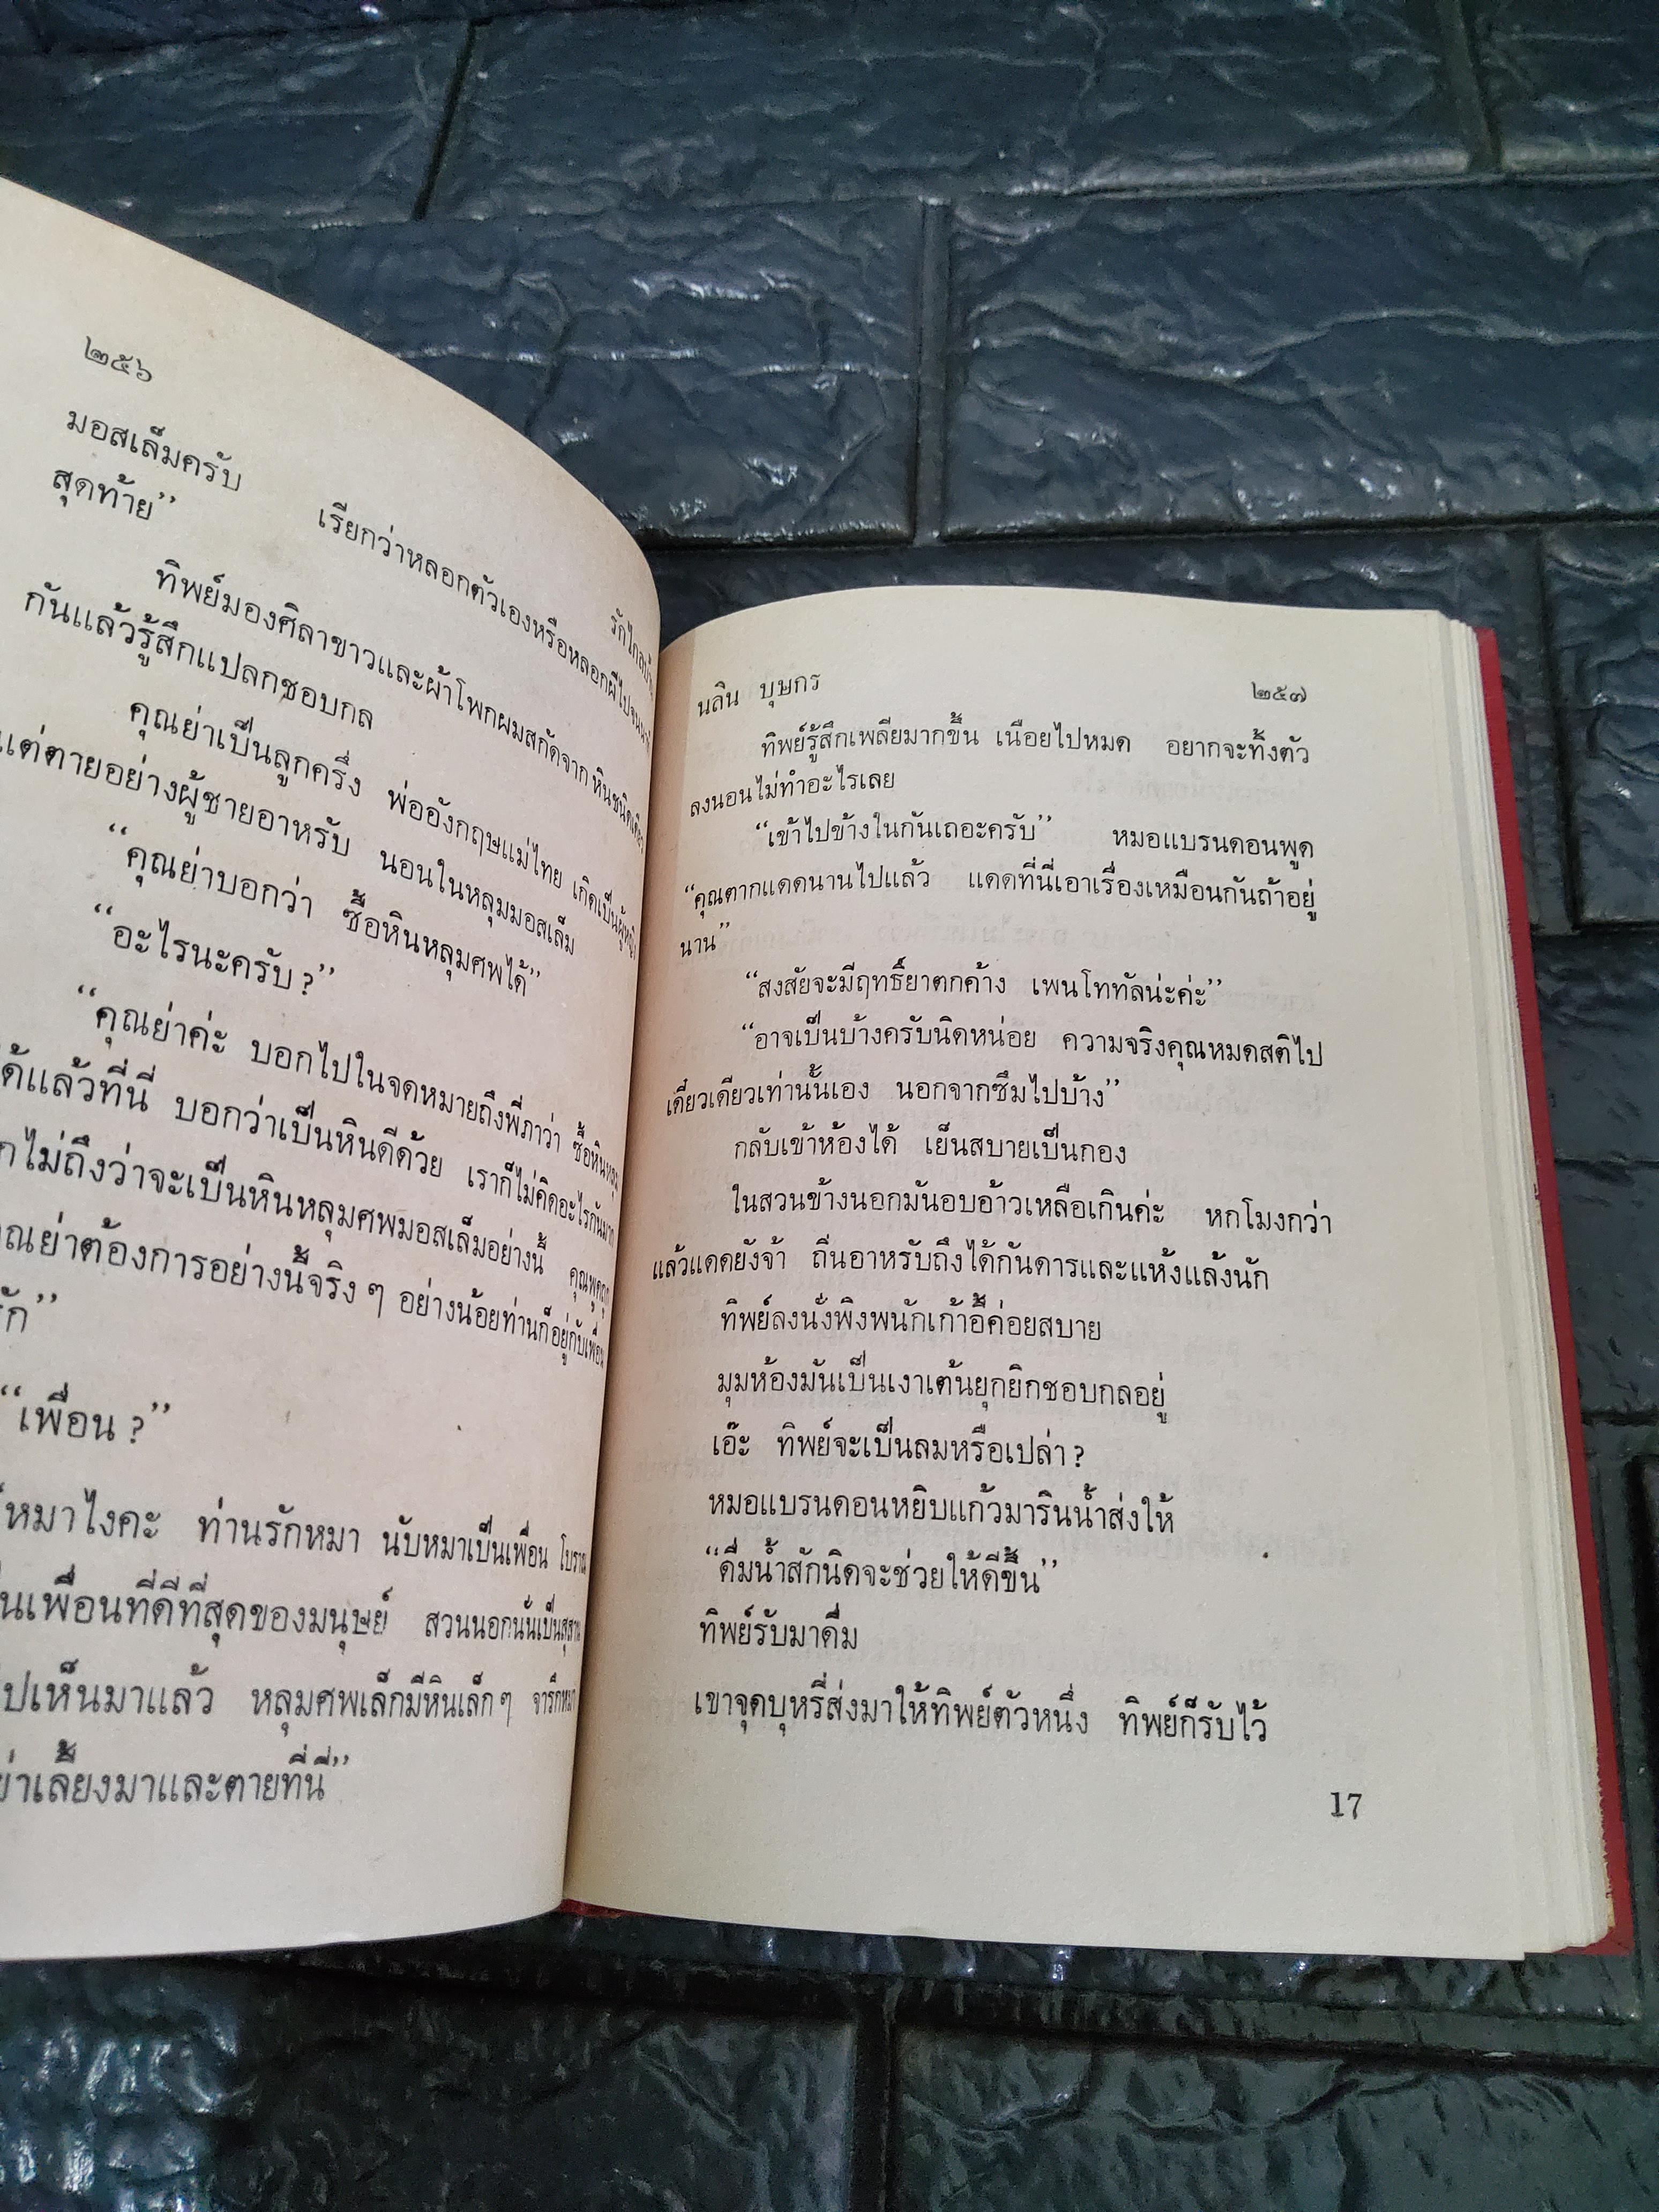 ๒๕๖
มอสเล็มครับ เรียกว่าหลอกตัวเองหรือหลอกผีไปจน
สุดท้าย”
ทิพย์มองศิลาขาวและผ้าโพกผมสกัดจากหินชนิดเดียว
กันแล้วรู้สึกแปลกชอบกล
คุณย่าเป็นลูกครึ่ง พ่ออังกฤษแม่ไทย เกิดเป็นผู้หญิง
แต่ตายอย่างผู้ชายอาหรับ นอนในหลุมมอสเล็ม
“คุณย่าบอกว่า ซื้อหินหลุมศพได้”
“อะไรนะครับ?”
“คุณย่าค่ะ บอกไปในจดหมายถึงพี่ภาว่า ซื้อหินหลุม
ได้แล้วที่นี่ บอกว่าเป็นหินดีด้วย เราก็ไม่คิดอะไรกันมาก
ไม่ถึงว่าจะเป็นหินหลุมศพมอสเล็มอย่างนี้
ต้องการอย่างนี้จริง ๆ อย่างน้อยท่านก็อยู่กับเพื่อน
รัก”
“เพื่อน?”
หมาไงคะ ท่านรักหมา นับหมาเป็นเพื่อน
เพื่อนที่ดีที่สุดของมนุษย์ สวนนอกนั่นเป็นสุสาน
เห็นมาแล้ว หลุมศพเล็กมีหินเล็กๆ จารึก
เลี้ยงมาและตายที่นี่”
นลิน บุษกร ๒๕๗
ทิพย์รู้สึกเพลียมากขึ้น เนือยไปหมด อยากจะทิ้งตัว
ลงนอนไม่ทำอะไรเลย
“เข้าไปข้างในกันเถอะครับ” หมอแบรนดอนพูด
“คุณตากแดดนานไปแล้ว แดดที่นี่เอาเรื่องเหมือนกันถ้าอยู่
นาน”
“สงสัยจะมีฤทธิ์ยาตกค้าง เพนโททัลน่ะค่ะ”
“อาจเป็นบ้างครับนิดหน่อย ความจริงคุณหมดสติไป
เดี๋ยวเดียวเท่านั้นเอง นอกจากซึมไปบ้าง”
กลับเข้าห้องได้ เย็นสบายเป็นกอง
ในสวนข้างนอกมันอบอ้าวเหลือเกินค่ะ หกโมงกว่า
แล้วแดดยังจ้า ถิ่นอาหรับถึงได้กันดารและแห้งแล้งนัก
ทิพย์ลงนั่งพิงพนักเก้าอี้ค่อยสบาย
มุมห้องมันเป็นเงาเต้นยุกยิกชอบกลอยู่
เอ๊ะ ทิพย์จะเป็นลมหรือเปล่า?
หมอแบรนดอนหยิบแก้วมารินน้ำส่งให้
“ดื่มน้ำสักนิดจะช่วยให้ดีขึ้น”
ทิพย์รับมาดื่ม
เขาจุดบุหรี่ส่งมาให้ทิพย์ตัวหนึ่ง ทิพย์ก็รับไว้
17